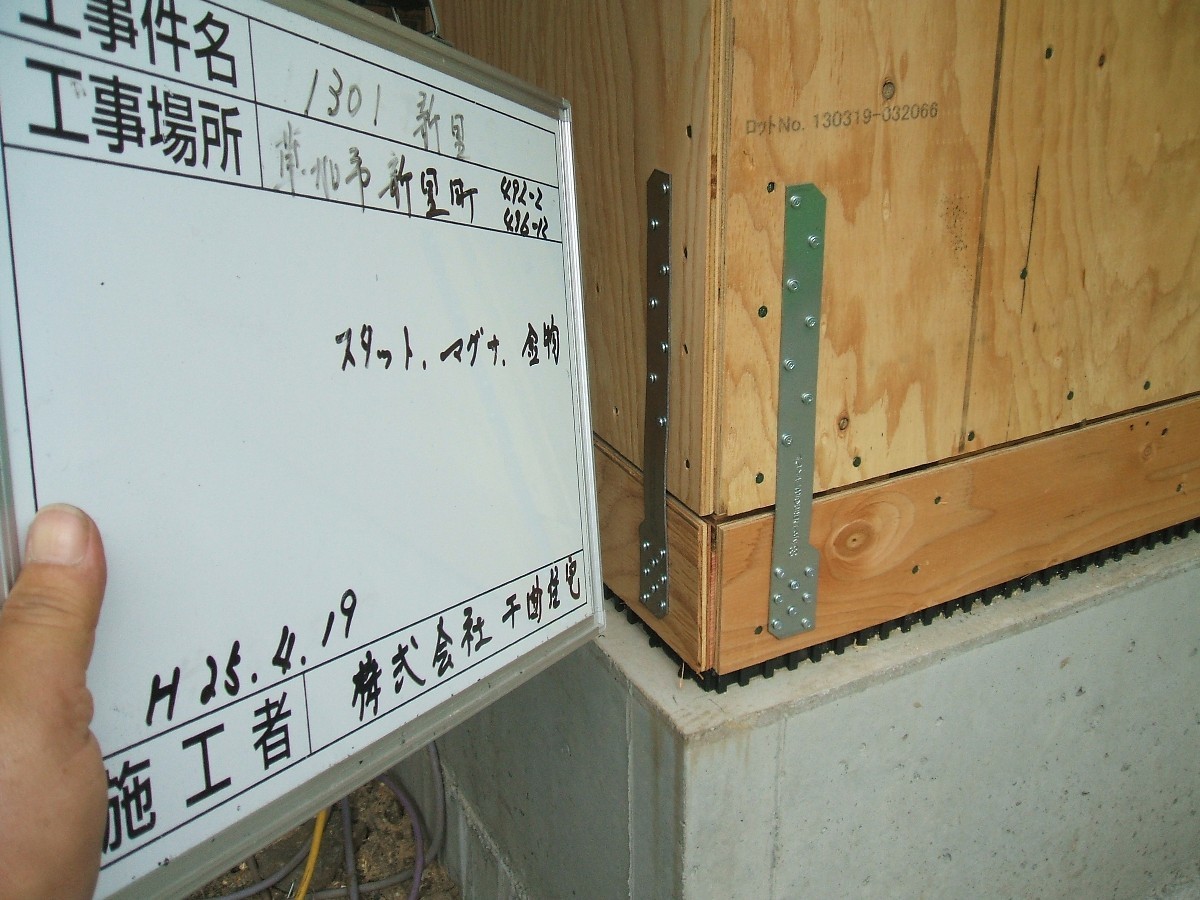 工事件名 1301 新里
工事場所 新里町 492-2
496-12
スタット、マグナ、金物
H25.4.19
施工者 株式会社 千曲住宅
ロットNo. 130319-032066